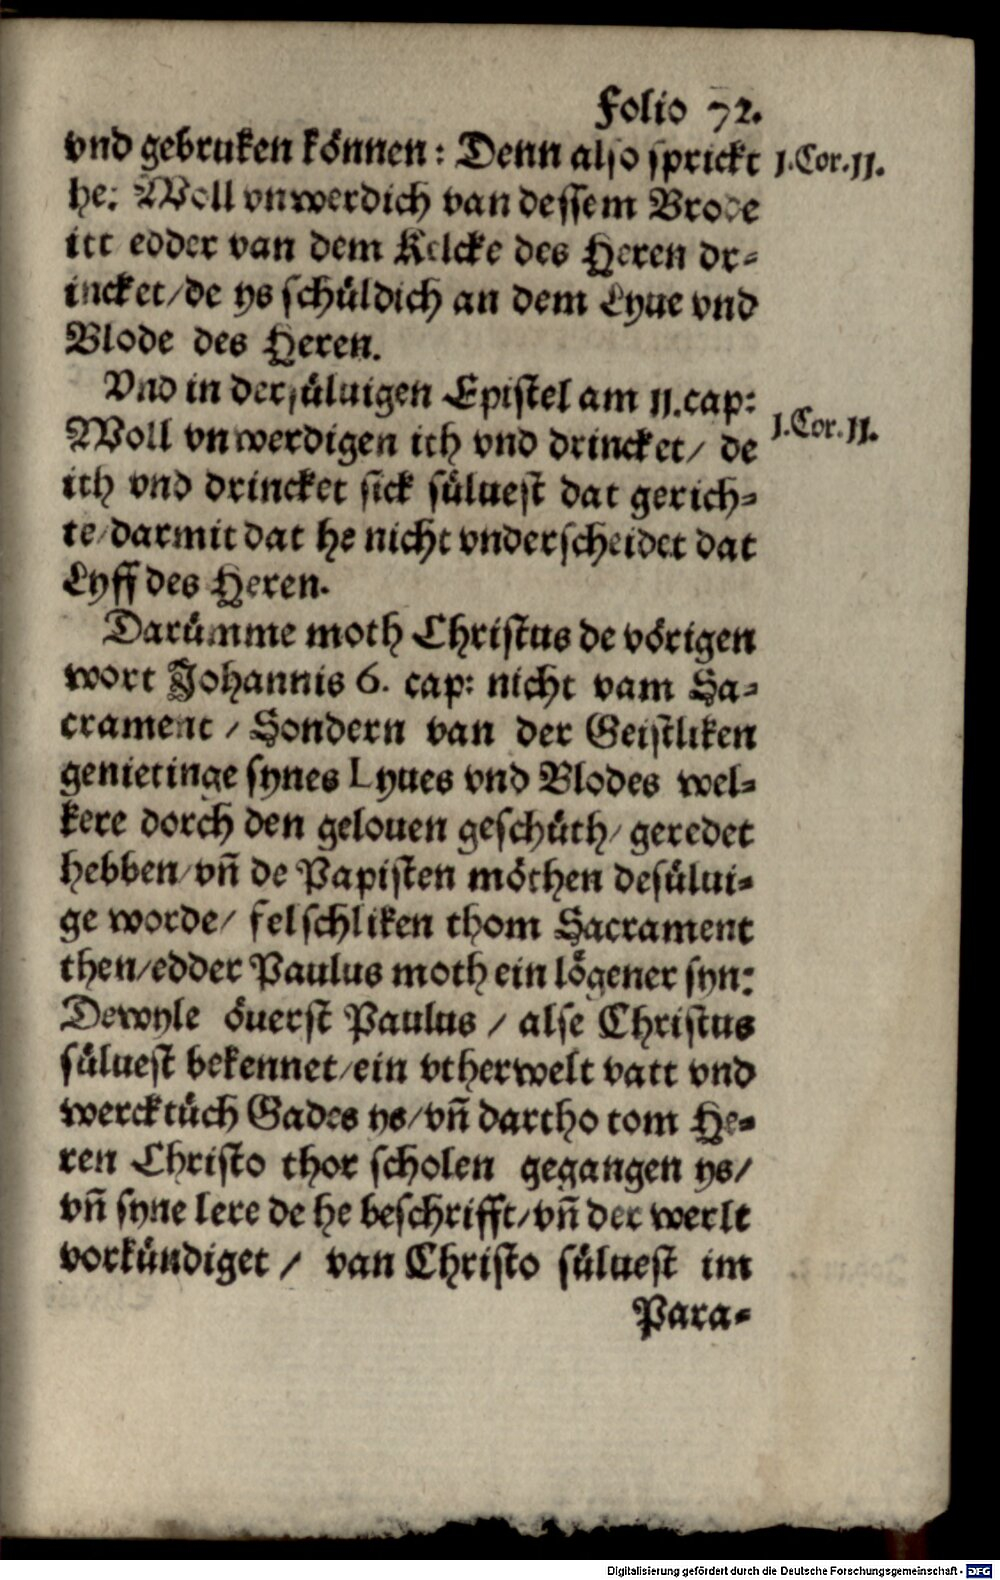 Folio 72.
vnd gebruken können: Denn also sprickt
1.Cor.11.
he: Woll vnwerdich van dessem Brode
itt edder van dem Kelcke des Heren dr-
incket/de ys schüldich an dem Lyue vnd
Blode des Heren.
Vnd in dersüluigen Epistel am 11.cap:
1.Cor.11.
Woll vnwerdigen ith vnd drincket/ de
ith vnd drincket sick süluest dat gerich-
te/darmit dat he nicht vnderscheidet dat
Lyff des Heren.
Darümme moth Christus de vörigen
wort Johannis 6. cap: nicht vam Sa-
crament / Sondern van der Geistliken
genietinge synes Lyues vnd Blodes wel-
kere dorch den gelouen geschüth/ geredet
hebben/vñ de Papisten möthen desülui-
ge worde/ felschliken thom Sacrament
then/edder Paulus moth ein lögener syn:
Dewyle öuerst Paulus / alse Christus
süluest bekennet/ein vtherwelt vatt vnd
wercktüch Gades ys/vñ dartho tom He-
ren Christo thor scholen gegangen ys/
vñ syne lere de he beschrifft/vñ der werlt
vorkündiget / van Christo süluest im
Para-
Digitalisierung gefördert durch die Deutsche Forschungsgemeinschaft - DFG